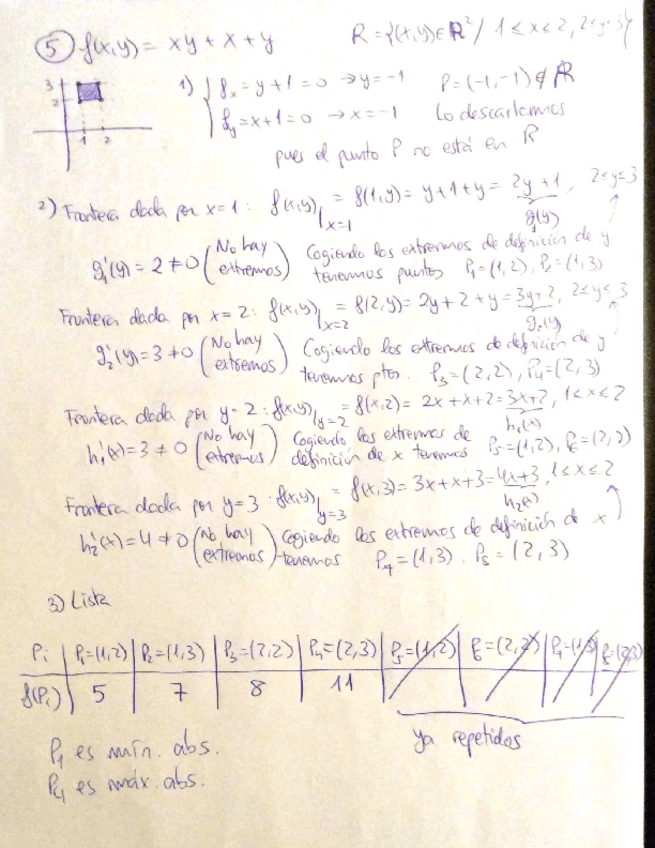 5 f(x,y) = xy + x + y R = {(x,y)∈ℝ²/ 1≤x≤2, 2≤y≤3}
3
2
1 2
1) { fx = y+1 = 0 → y = -1 P = (-1,-1) ∉ R
fy = x+1 = 0 → x = -1 Lo descartamos
pues el punto P no está en R
2) Frontera dada por x=1: f(x,y)|x=1 = f(1,y) = y+1+y = 2y+1, 2≤y≤3
g1(y)
g1'(y) = 2 ≠ 0 (No hay extremos) Cogiendo los extremos de definición de y
tenemos puntos P1=(1,2), P2=(1,3)
Frontera dada por x=2: f(x,y)|x=2 = f(2,y) = 2y+2+y = 3y+2, 2≤y≤3
g2(y)
g2'(y) = 3 ≠ 0 (No hay extremos) Cogiendo los extremos de definición de y
tenemos ptos. P3=(2,2), P4=(2,3)
Frontera dada por y=2: f(x,y)|y=2 = f(x,2) = 2x+x+2 = 3x+2, 1≤x≤2
h1(x)
h1'(x) = 3 ≠ 0 (No hay extremos) Cogiendo los extremos de
definición de x tenemos P5=(1,2), P6=(2,2)
Frontera dada por y=3: f(x,y)|y=3 = f(x,3) = 3x+x+3 = 4x+3, 1≤x≤2
h2(x)
h2'(x) = 4 ≠ 0 (No hay extremos) Cogiendo los extremos de definición de x
tenemos P7=(1,3), P8=(2,3)
3) Lista
Pi | P1=(1,2) | P2=(1,3) | P3=(2,2) | P4=(2,3) | P5=(1,2) | P6=(2,2) | P7=(1,3) | P8=(2,3)
f(Pi) | 5 | 7 | 8 | 11
ya repetidos
P1 es mín. abs.
P4 es máx. abs.